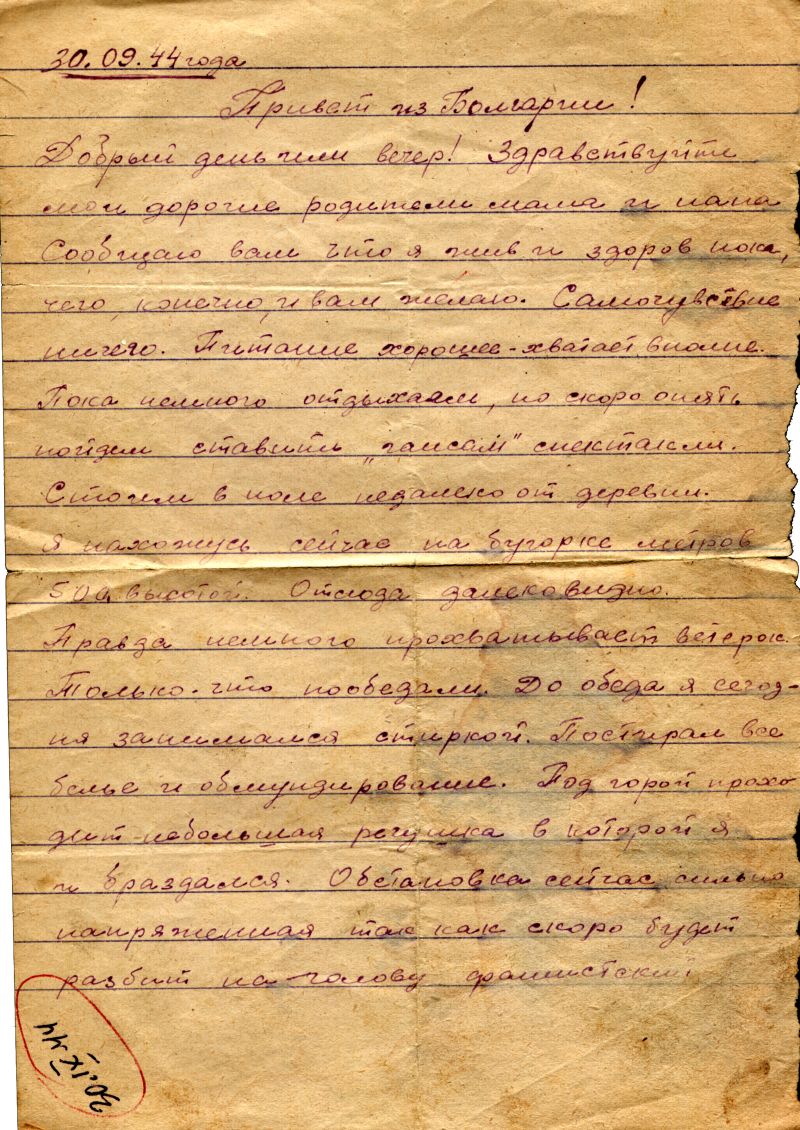 30.09.44 года
Привет из Болгарии!
Добрый день или вечер! Здравствуйте
мои дорогие родители мама и папа
Сообщаю вам что я жив и здоров пока,
чего, конечно, и вам желаю. Самочувствие
ничего. Питание хорошее - хватает вполне.
Пока немного отдыхаем, но скоро опять
пойдем ставить „гансам" спектакли.
Стоим в поле недалеко от деревни.
Я нахожусь сейчас на бугорке метров
500 высотой. Отсюда далеко видно.
Правда немного прохватывает ветерок.
Только-что пообедали. До обеда я сегод-
ня занимался стиркой. Постирал все
белье и обмундирование. Под горой прохо-
дит небольшая речушка в которой я
и браздался. Обстановка сейчас сильно
напряженная так как скоро будет
разбит на-голову фашистский
30.IX 44